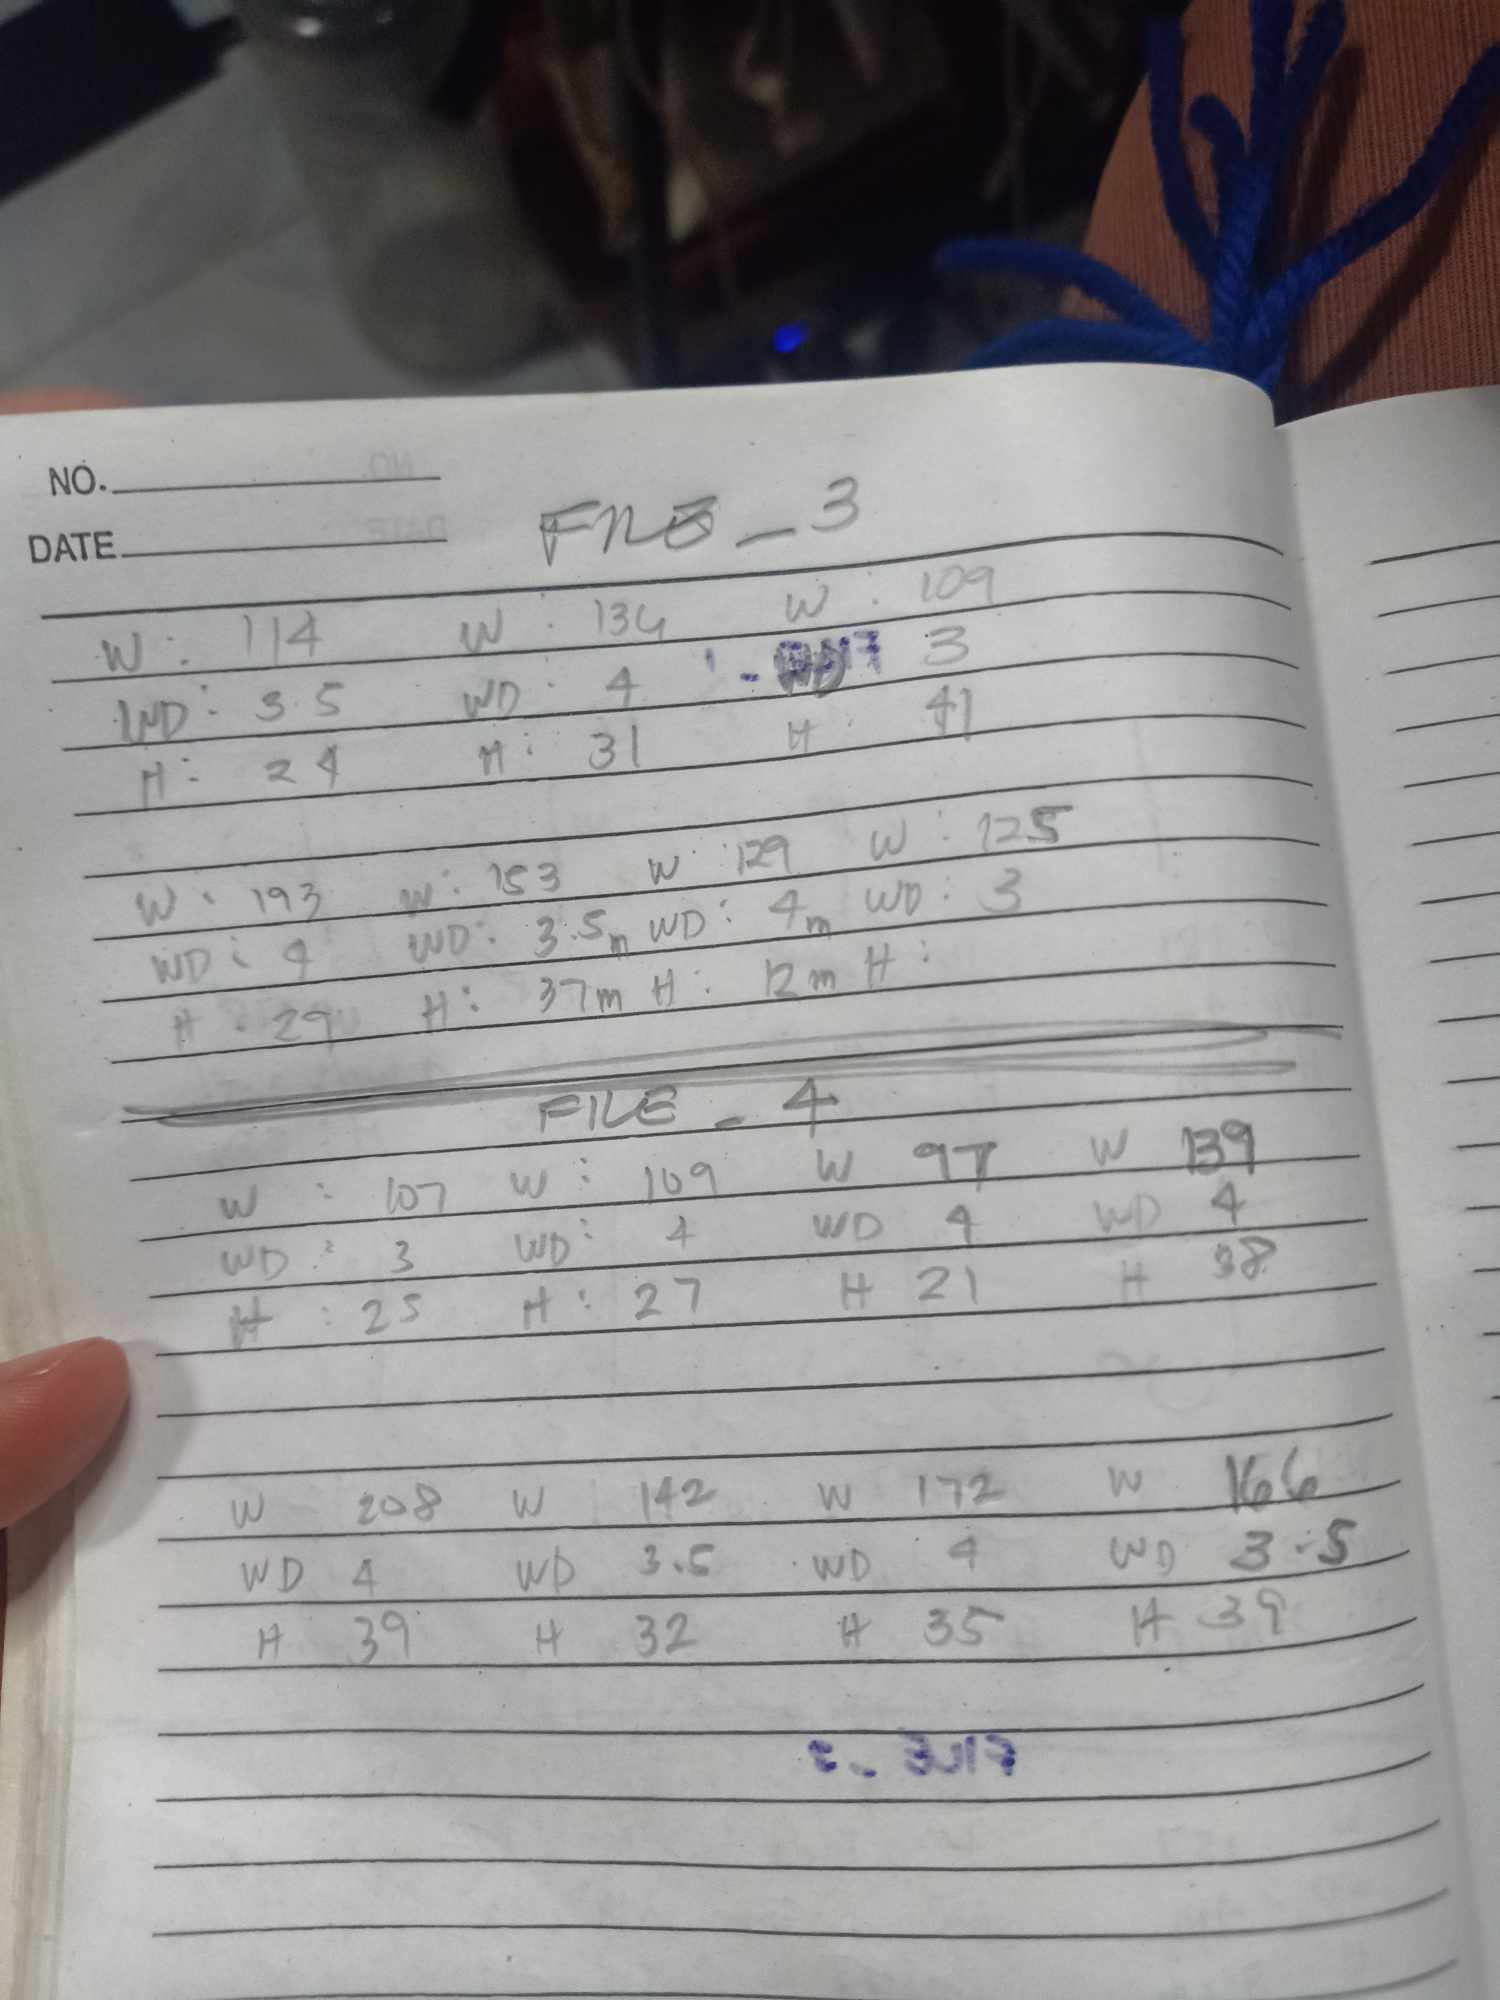 NO.
DATE
FILE - 3
W : 114 W : 134 W : 109
WD : 3.5 WD : 4 3
H : 24 H : 31 H : 41
W : 193 W : 153 W : 129 W : 125
WD : 4 WD : 3.5m WD : 4m WD : 3
H : 29 H : 37m H : 12m H :
FILE - 4
W : 107 W : 109 W 97 W 139
WD : 3 WD : 4 WD 4 WD 4
H : 25 H : 27 H 21 H 38
W 208 W 142 W 172 W 166
WD 4 WD 3.5 WD 4 WD 3.5
H 39 H 32 H 35 H 39